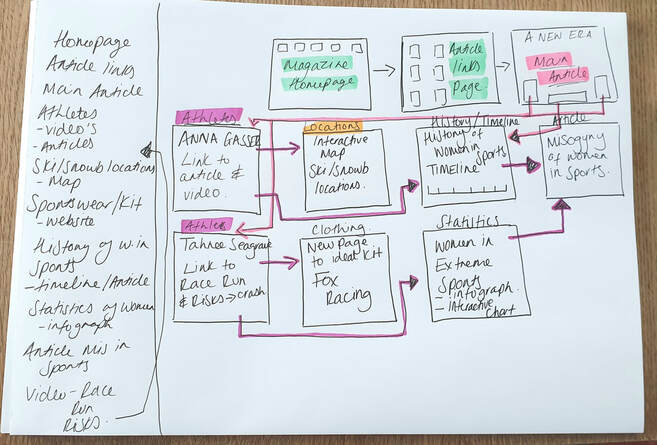 Homepage
Article links
Main Article
Athletes
- video's
- Articles
Ski/snowb locations
- Map
Sportswear/Kit
- website
History of w in
Sports
- timeline/Article
Statistics of women
- infograph
Article mis in
Sports
Video - Race
Run
Risks.
Magazine
Homepage
Article
links
Page
A NEW ERA
Main
Article
Athletes
ANNA GASSER
Link to
article &
video.
Locations
Interactive
Map
Ski/Snowb
locations.
History/Timeline
History of
Women in
Sports
TIMELINE
Article
Misogyny
of women
in sports.
Athletes
Tahnee Seagrave
Link to
Race Run
& Risks → crash
Clothing
New page
to ideal Kit
Fox
Racing
Statistics
Women in
Extreme
Sports
- infograph.
- Interactive
Chart